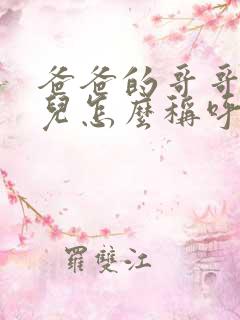 爸爸的哥哥
兒怎麼稱呼
羅雙江